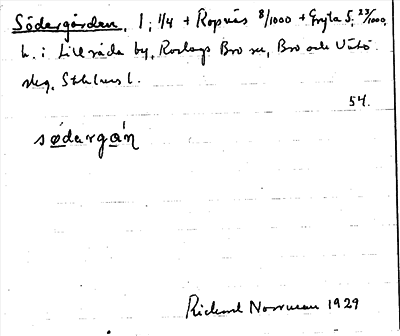 Södergården, 1; 1/4 + Ropnäs 8/1000 + Gryta 5; 23/1000,
h. i Lillråda by, Roslags Bro sn, Bro och Vätö
skg, Sthlms l.
54.
södargån
Richard Norrman 1929